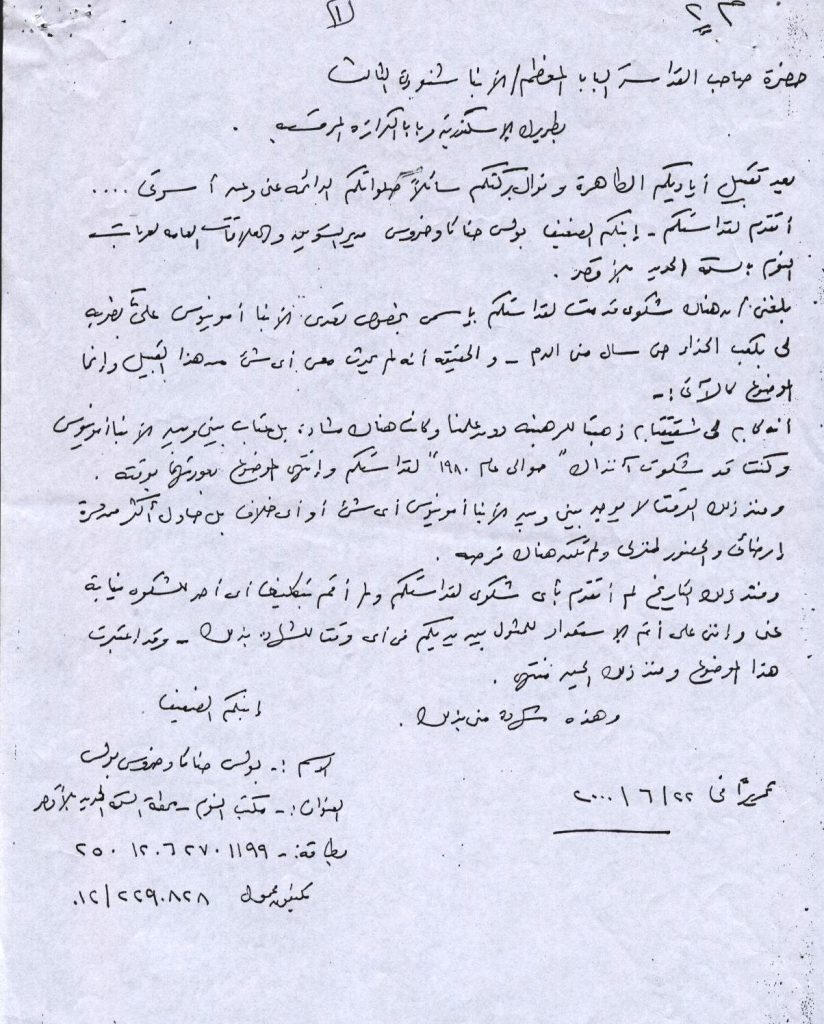 م ٢
١
حضرة صاحب القداسة البابا المعظم / الأنبا شنودة الثالث
بطريرك الإسكندرية وبابا الكرازة المرقسية .
بعد تقبيل أياديكم الطاهرة ونوال بركتكم سائلاً صلواتكم الدائمة عنى وعن أسرتى ....
أتقدم لقداستكم - إبنكم الضعيف بولس حنا كاوضروس مدير التسويق والعلاقات العامه لعربات
النوم بالسكة الحديد بالأقصر .
بلغنى / هناك شكوى قدمت لقداستكم بإسمى بخصوص تعدى الأنبا أمونيوس علىَّ بضربه
لى بكعب الحذاء حتى سال منى الدم - والحقيقه أنه لم يحدث معى أى شئ من هذا القبيل وإنما
الموضوع كالآتى :-
أنه كان لى شقيقتان ذهبتا للرهبنه بدون علمنا وكانت هناك مشادة بل عتاب بينى وبين الأنبا أمونيوس
وكنت قد شكوت آنذاك " حوالى عام ١٩٨٠ " لقداستكم وإنتهى الموضوع بوقته .
ومنذ ذلك الوقت لا يوجد بينى وبين الأنبا أمونيوس أى شئ أو أى خلاف بل حاول أكثر من مرة
إرضائى والحضور لمنزلى ولم تكن هناك فرصه .
ومنذ ذلك التاريخ لم أتقدم بأى شكوى لقداستكم ولم أقم بتكليف أى أحد للشكوى نيابة
عنى وإننى على أتم الإستعداد للمثول بين يديكم فى أى وقت للشهادة بذلك - وقد اعتبرت
هذا الموضوع ومنذ ذلك الحين منتهى .
وهذه شهادة منى بذلك .
إبنكم الضعيف
الاسم :- بولس حنا كاوضروس بولس
العنوان :- مكتب النوم - محطة السكة الحديد بالأقصر
بطاقة :- ٢٥٠١٢٠٦٢٧٠١١٩٩
تليفون محمول ٠١٢/٢٢٩٠٨٢٨
تحريراً فى ٢٢/٦/٢٠٠٠